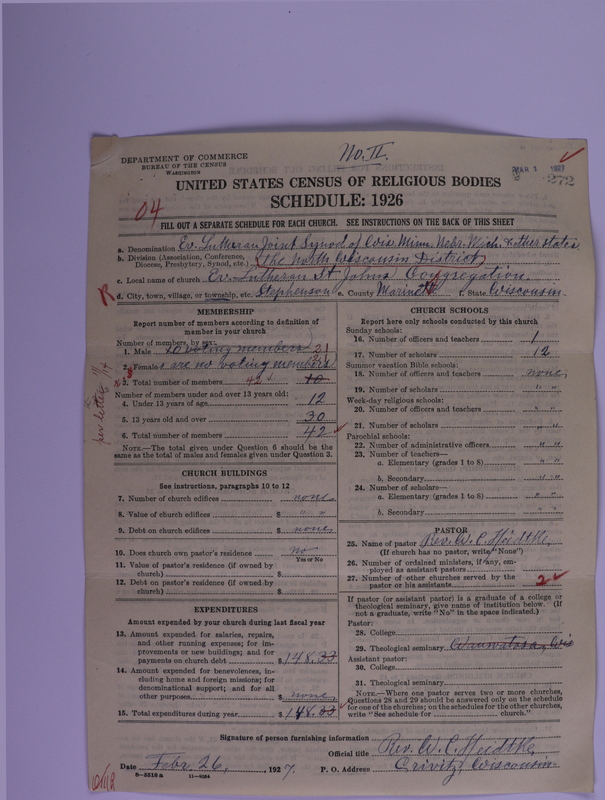 No. II.
DEPARTMENT OF COMMERCE
BUREAU OF THE CENSUS
WASHINGTON
MAR 1 1927
UNITED STATES CENSUS OF RELIGIOUS BODIES
SCHEDULE: 1926
04
FILL OUT A SEPARATE SCHEDULE FOR EACH CHURCH. SEE INSTRUCTIONS ON THE BACK OF THIS SHEET
a. Denomination Ev. Lutheran Joint Synod of Wis. Minn. Nebr. Mich. & other states
b. Division (Association, Conference, Diocese, Presbytery, Synod, etc.) (The North Wisconsin District)
c. Local name of church Ev. Lutheran St Johns Congregation
R d. City, town, village, or township, etc. Stephenson e. County Marinette f. State Wisconsin
MEMBERSHIP
Report number of members according to definition of member in your church
Number of members, by sex:
1. Male 10 voting members 21
2. Female are no voting members
3. Total number of members 42 10
Number of members under and over 13 years old:
4. Under 13 years of age 12
5. 13 years old and over 30
6. Total number of members 42
NOTE.—The total given under Question 6 should be the same as the total of males and females given under Question 3.
CHURCH BUILDINGS
See instructions, paragraphs 10 to 12
7. Number of church edifices none
8. Value of church edifices $ " "
9. Debt on church edifices $ none
10. Does church own pastor's residence No
Yes or No
11. Value of pastor's residence (if owned by church) $
12. Debt on pastor's residence (if owned by church) $
EXPENDITURES
Amount expended by your church during last fiscal year
13. Amount expended for salaries, repairs, and other running expenses; for improvements or new buildings; and for payments on church debt $ 148.33
14. Amount expended for benevolences, including home and foreign missions; for denominational support; and for all other purposes $ none
15. Total expenditures during year $ 148.33
CHURCH SCHOOLS
Report here only schools conducted by this church
Sunday schools:
16. Number of officers and teachers 1
17. Number of scholars 12
Summer vacation Bible schools:
18. Number of officers and teachers none
19. Number of scholars " "
Week-day religious schools:
20. Number of officers and teachers " "
21. Number of scholars " "
Parochial schools:
22. Number of administrative officers " "
23. Number of teachers—
a. Elementary (grades 1 to 8) " "
b. Secondary " "
24. Number of scholars—
a. Elementary (grades 1 to 8) " "
b. Secondary " "
PASTOR
25. Name of pastor Rev. W. C. Heidtke
(If church has no pastor, write "None")
26. Number of ordained ministers, if any, employed as assistant pastors
27. Number of other churches served by the pastor or his assistants 2
If pastor (or assistant pastor) is a graduate of a college or theological seminary, give name of institution below. (If not a graduate, write "No" in the space indicated.)
Pastor:
28. College
29. Theological seminary Wauwatosa, Wis
Assistant pastor:
30. College
31. Theological seminary
NOTE.—Where one pastor serves two or more churches, Questions 28 and 29 should be answered only on the schedule for one of the churches; on the schedules for the other churches, write "See schedule for church."
Signature of person furnishing information
Official title Rev. W. C. Heidtke
Date Febr. 26, 1927. P. O. Address Crivitz, Wisconsin
8—5518a 11—9264